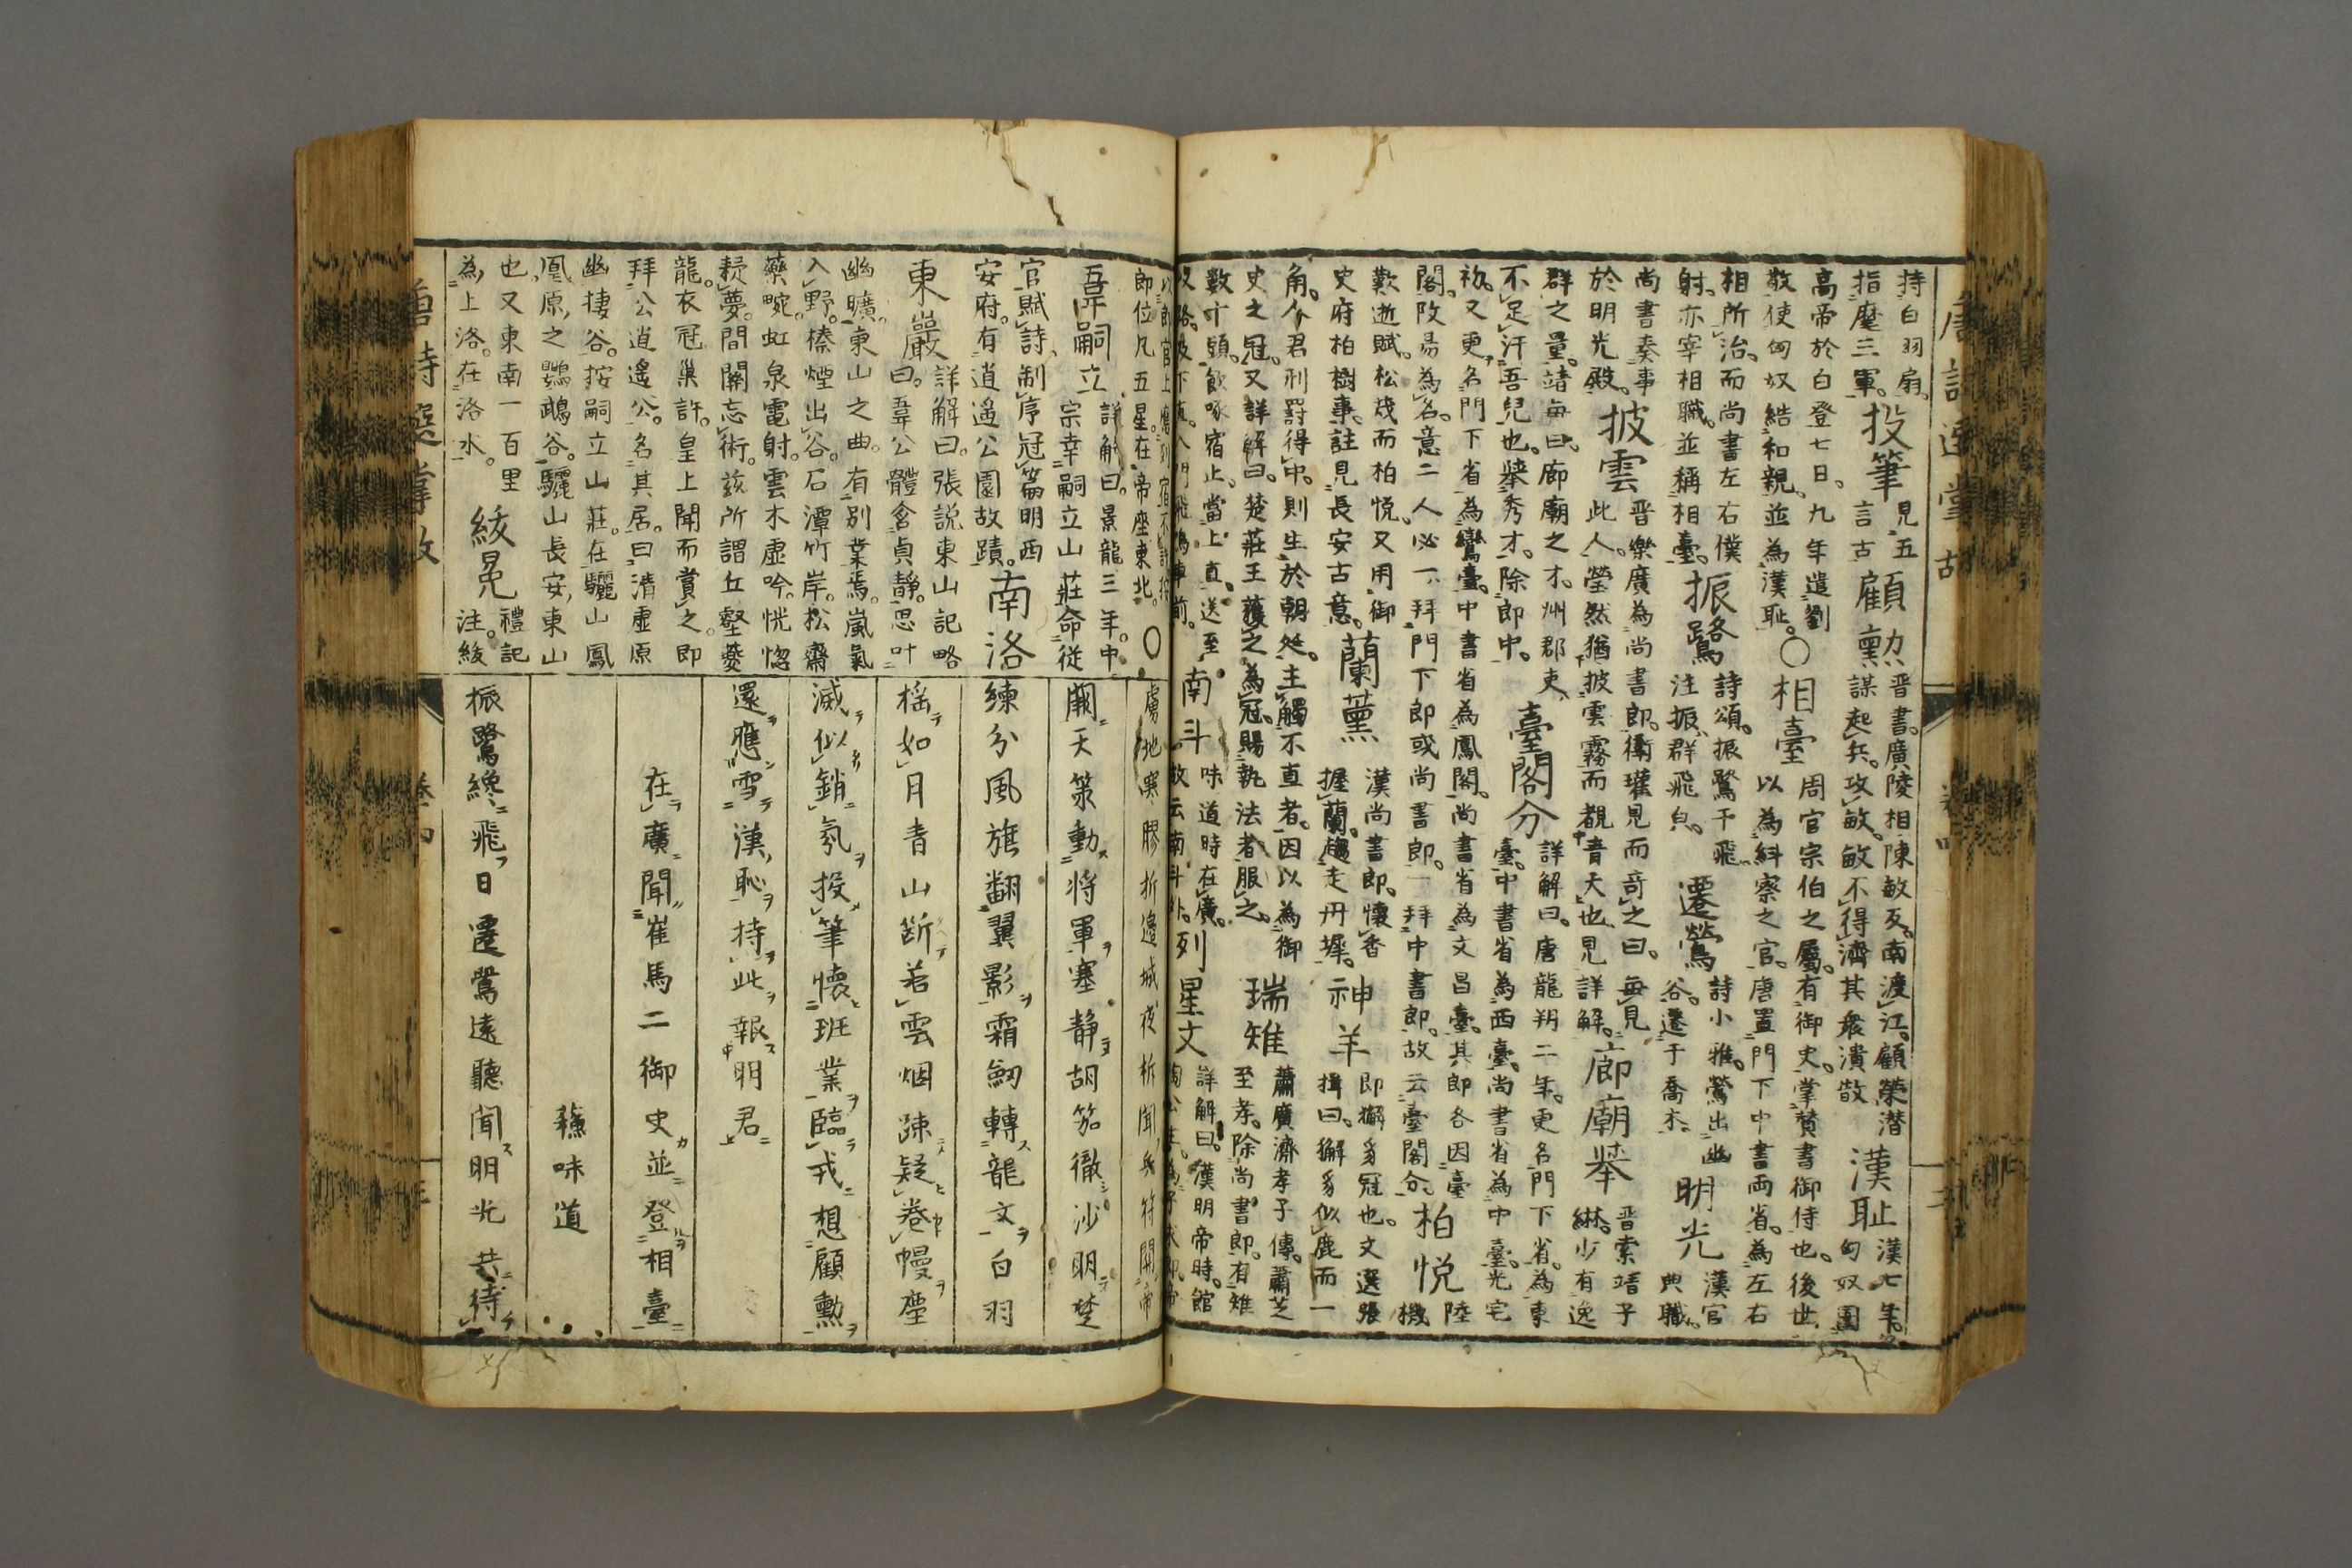 唐詩選掌故 卷四
持白羽扇。
指麾三軍。
投筆
見五
言古
顧勲
晋書。廣陵相陳敏反。南渡江。顧榮潜
謀起兵。攻敏。敏不得濟其衆潰散
漢恥
漢七年。
匈奴圍
高帝於白登七日。九年遣劉
敬使匈奴結和親。並為漢恥。〇
相臺
周官宗伯之屬。有御史。掌賛書御侍也。後世
以為糾察之官。唐置門下中書両省。為左右
相所治。而尚書左右僕
射。亦宰相職。並稱相臺。
振鷺
詩頌。振鷺于飛。
注振群飛皃。
遷鶯
詩小雅。鶯出幽
谷。遷于喬木。
明光
漢官
典職。
尚書奏事
於明光殿。
披雲
晋樂廣為尚書郎。衞瓘見而竒之曰。毎見
此人。瑩然猶披雲霧而覩青天也。見詳解。
廊廟挙
晋索靖子
綝。少有逸
群之量。靖毎曰。廊廟之才。州郡吏
不足汗吾児也。挙秀才。除郎中。
臺閣分
詳解曰。唐龍朔二年。更名門下省。為東
臺。中書省為西臺。尚書省為中臺。光宅
初。又更名門下省為鸞臺。中書省為鳳閣。尚書省為文昌臺。其郎各因臺
閣。改易為名。意二人必一拜門下郎或尚書郎。一拜中書郎。故云臺閣分。
柏悦
陸
機
歎逝賦。松茂而柏悦。又用御
史府柏樹事。註見長安古意。
蘭薫
漢尚書郎。懐香
握蘭。趨走丹墀。
神羊
即獬豸冠也。文選張
揖曰。獬豸似鹿而一
角。人君刑罸得中。則生於朝廷。主觸不直者。因以為御
史之冠。又詳解曰。楚荘王獲之為冠。賜執法者服之。
瑞雉
蕭廣濟孝子傳。蕭芝
至孝。除尚書郎。有雉
數十頭。飲啄宿止。當上直。送至
岐路。及下直。入門飛鳴車前。
南斗
味道時在廣。
故云南斗外。
列星文
詳解曰。漢明帝時。館
陶公主。為子求郎。帝
以郎官上應列宿不許按
郎位九五星。在帝座東北。〇
韋嗣立
詳解曰。景龍三年。中
宗幸嗣立山荘命從
官賦詩。制序冠篇明西
安府。有逍遥公園故蹟。
南洛
東巖
詳解曰。張説東山記略
曰。韋公體含貞靜。思叶
幽曠。東山之曲。有別業焉。嵐氣
入野。榛煙出谷。石潭竹岸。松齋
藥畹。虹泉電射。雲木虚吟。恍惚
疑夢。間關忘術。兹所謂丘壑夔
龍。衣冠巣許。皇上聞而賞之。即
拜公逍遥公。名其居。曰清虚原
幽棲谷。按嗣立山荘。在驪山鳳
凰原之鸚鵡谷。驪山長安東山
也。又東南一百里
為上洛。在洛水。
綏冕
禮記
注。綏
虜地寒膠折邊城夜柝聞兵符關帝
闕天策動將軍塞靜胡笳徹沙明楚
練分風旗翻翼影霜劒轉龍文白羽
揺如月青山断若雲烟疎疑卷幔塵
滅似銷氛投筆懐班業臨戎想顧勲
還應雪漢恥持此報明君
在廣聞崔馬二御史並登相臺
蘇味道
振鷺纔飛日遷鶯遠聽聞明光共待
唐詩選掌故 卷四